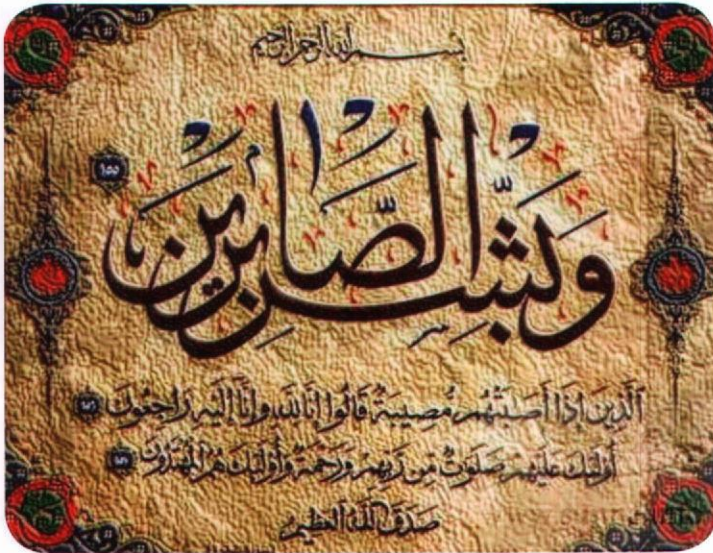 بسم الله الرحمن الرحيم
وَبَشِّرِ الصَّابِرِينَ ١٥٥
الَّذِينَ إِذَا أَصَابَتْهُمْ مُصِيبَةٌ قَالُوا إِنَّا لِلَّهِ وَإِنَّا إِلَيْهِ رَاجِعُونَ ١٥٦
أُولَئِكَ عَلَيْهِمْ صَلَوَاتٌ مِنْ رَبِّهِمْ وَرَحْمَةٌ وَأُولَئِكَ هُمُ الْمُهْتَدُونَ ١٥٧
صدق الله العظيم